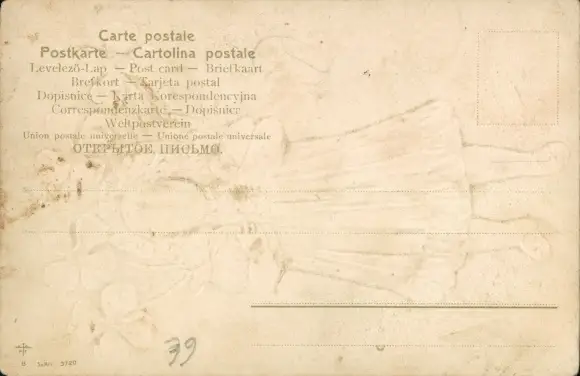 Carte postale
Postkarte — Cartolina postale
Levelező-Lap — Post card — Briefkaart
Brefkort — Tarjeta postal
Dopisnice — Karta Korespondencyjna
Correspondenzkarte — Dopisnier
Weltpostverein
Union postale universelle — Unione postale universale
ОТКРЫТОЕ ПИСЬМО.
39